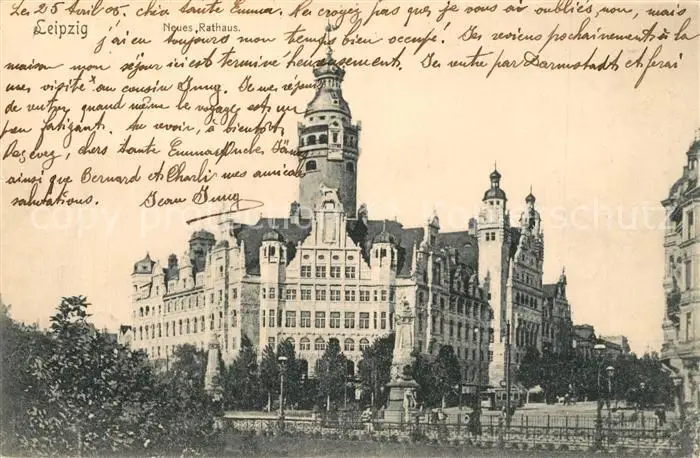 Le 25 Avril 05. chère tante Emma. Ne croyez pas que je vous ai oubliés, non, mais
Leipzig
Neues Rathaus.
j'ai eu toujours mon temps bien occupé! Je reviens prochainement à la
maison mon séjour ici est terminé heureusement. Je rentre par Darmstadt et ferai
une visite au cousin Jung. Je me réjouis
de rentrer quand même le voyage est un
peu fatigant. Au revoir, à bientôt.
Recevez, chers tante Emma, Oncle
ainsi que Bernard et Charli mes amicales
salutations. Jean Jung
© Copyright by ansichtskarten-lexikon.de Shutz